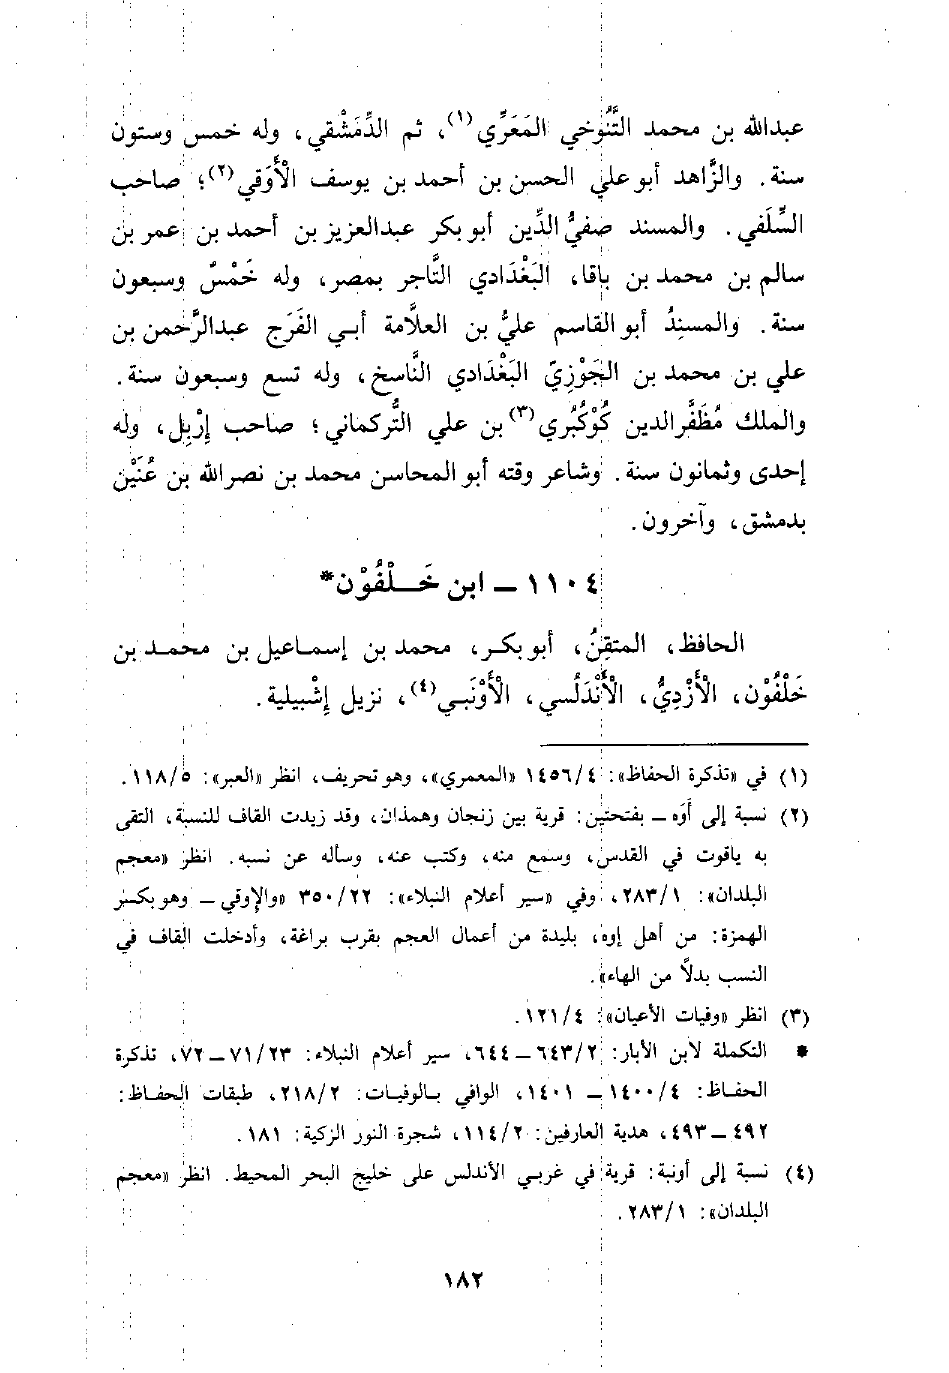 عبدالله بن محمد التَّنُوخي المَعَرِّي(١)، ثم الدِّمَشْقي، وله خمس وستون
سنة. والزَّاهد أبو علي الحسن بن أحمد بن يوسف الأَوَقي(٢)؛ صاحب
السِّلَفي. والمسند صفيُّ الدِّين أبو بكر عبدالعزيز بن أحمد بن عمر بن
سالم بن محمد بن باقا، البَغْدادي التَّاجر بمصر، وله خَمْسٌ وسبعون
سنة. والمسنِدُ أبو القاسم عليُّ بن العلاَّمة أبي الفَرَج عبدالرَّحمن بن
علي بن محمد بن الجَوْزِيّ البَغْدَادي النَّاسخ، وله تسع وسبعون سنة.
والملك مُظَفَّر الدين كُوْكُبُري(٣) بن علي التُّركماني؛ صاحب إرْبِل، وله
إحدى وثمانون سنة. وشاعر وقته أبو المحاسن محمد بن نصر الله بن عُنَيْن
بدمشق، وآخرون.
١١٠٤ ــ ابن خَــلْفُوْن*
الحافظ، المتقِنُ، أبو بكر، محمد بن إسماعيل بن محمد بن
خَلْفُوْن، الأَزْدِيُّ، الأَنْدَلُسي، الأَوْنَبي(٤)، نزيل إشْبيلية.
(١) في «تذكرة الحفاظ»: ١٤٥٦/٤ «المعمري»، وهو تحريف، انظر «العبر»: ١١٨/٥.
(٢) نسبة إلى أَوَه ــ بفتحتين: قرية بين زنجان وهمذان، وقد زيدت القاف للنسبة، التقى
به ياقوت في القدس، وسمع منه، وكتب عنه، وسأله عن نسبه. انظر «معجم
البلدان»: ٢٨٣/١، وفي «سير أعلام النبلاء»: ٣٥٠/٢٢ «والإوقي ــ وهو بكسر
الهمزة: من أهل إوه، بليدة من أعمال العجم بقرب براغة، وأدخلت القاف في
النسب بدلاً من الهاء».
(٣) انظر «وفيات الأعيان»: ١٢١/٤.
* التكملة لابن الأبار: ٦٤٣/٢ ــ ٦٤٤، سير أعلام النبلاء: ٧١/٢٣ ــ ٧٢، تذكرة
الحفاظ: ١٤٠٠/٤ ــ ١٤٠١، الوافي بالوفيات: ٢١٨/٢، طبقات الحفاظ:
٤٩٢ ــ ٤٩٣، هدية العارفين: ١١٤/٢، شجرة النور الزكية: ١٨١.
(٤) نسبة إلى أونبة: قرية في غربي الأندلس على خليج البحر المحيط. انظر «معجم
البلدان»: ٢٨٣/١.
١٨٢